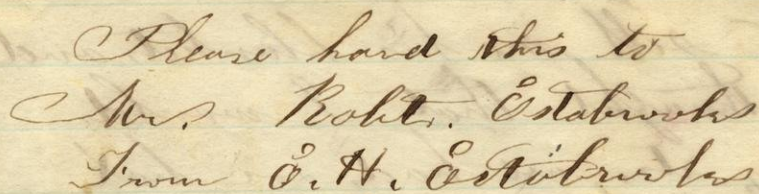 Please hand this to
Mr. Robt. Estabrooks
From E. H. Estabrooks